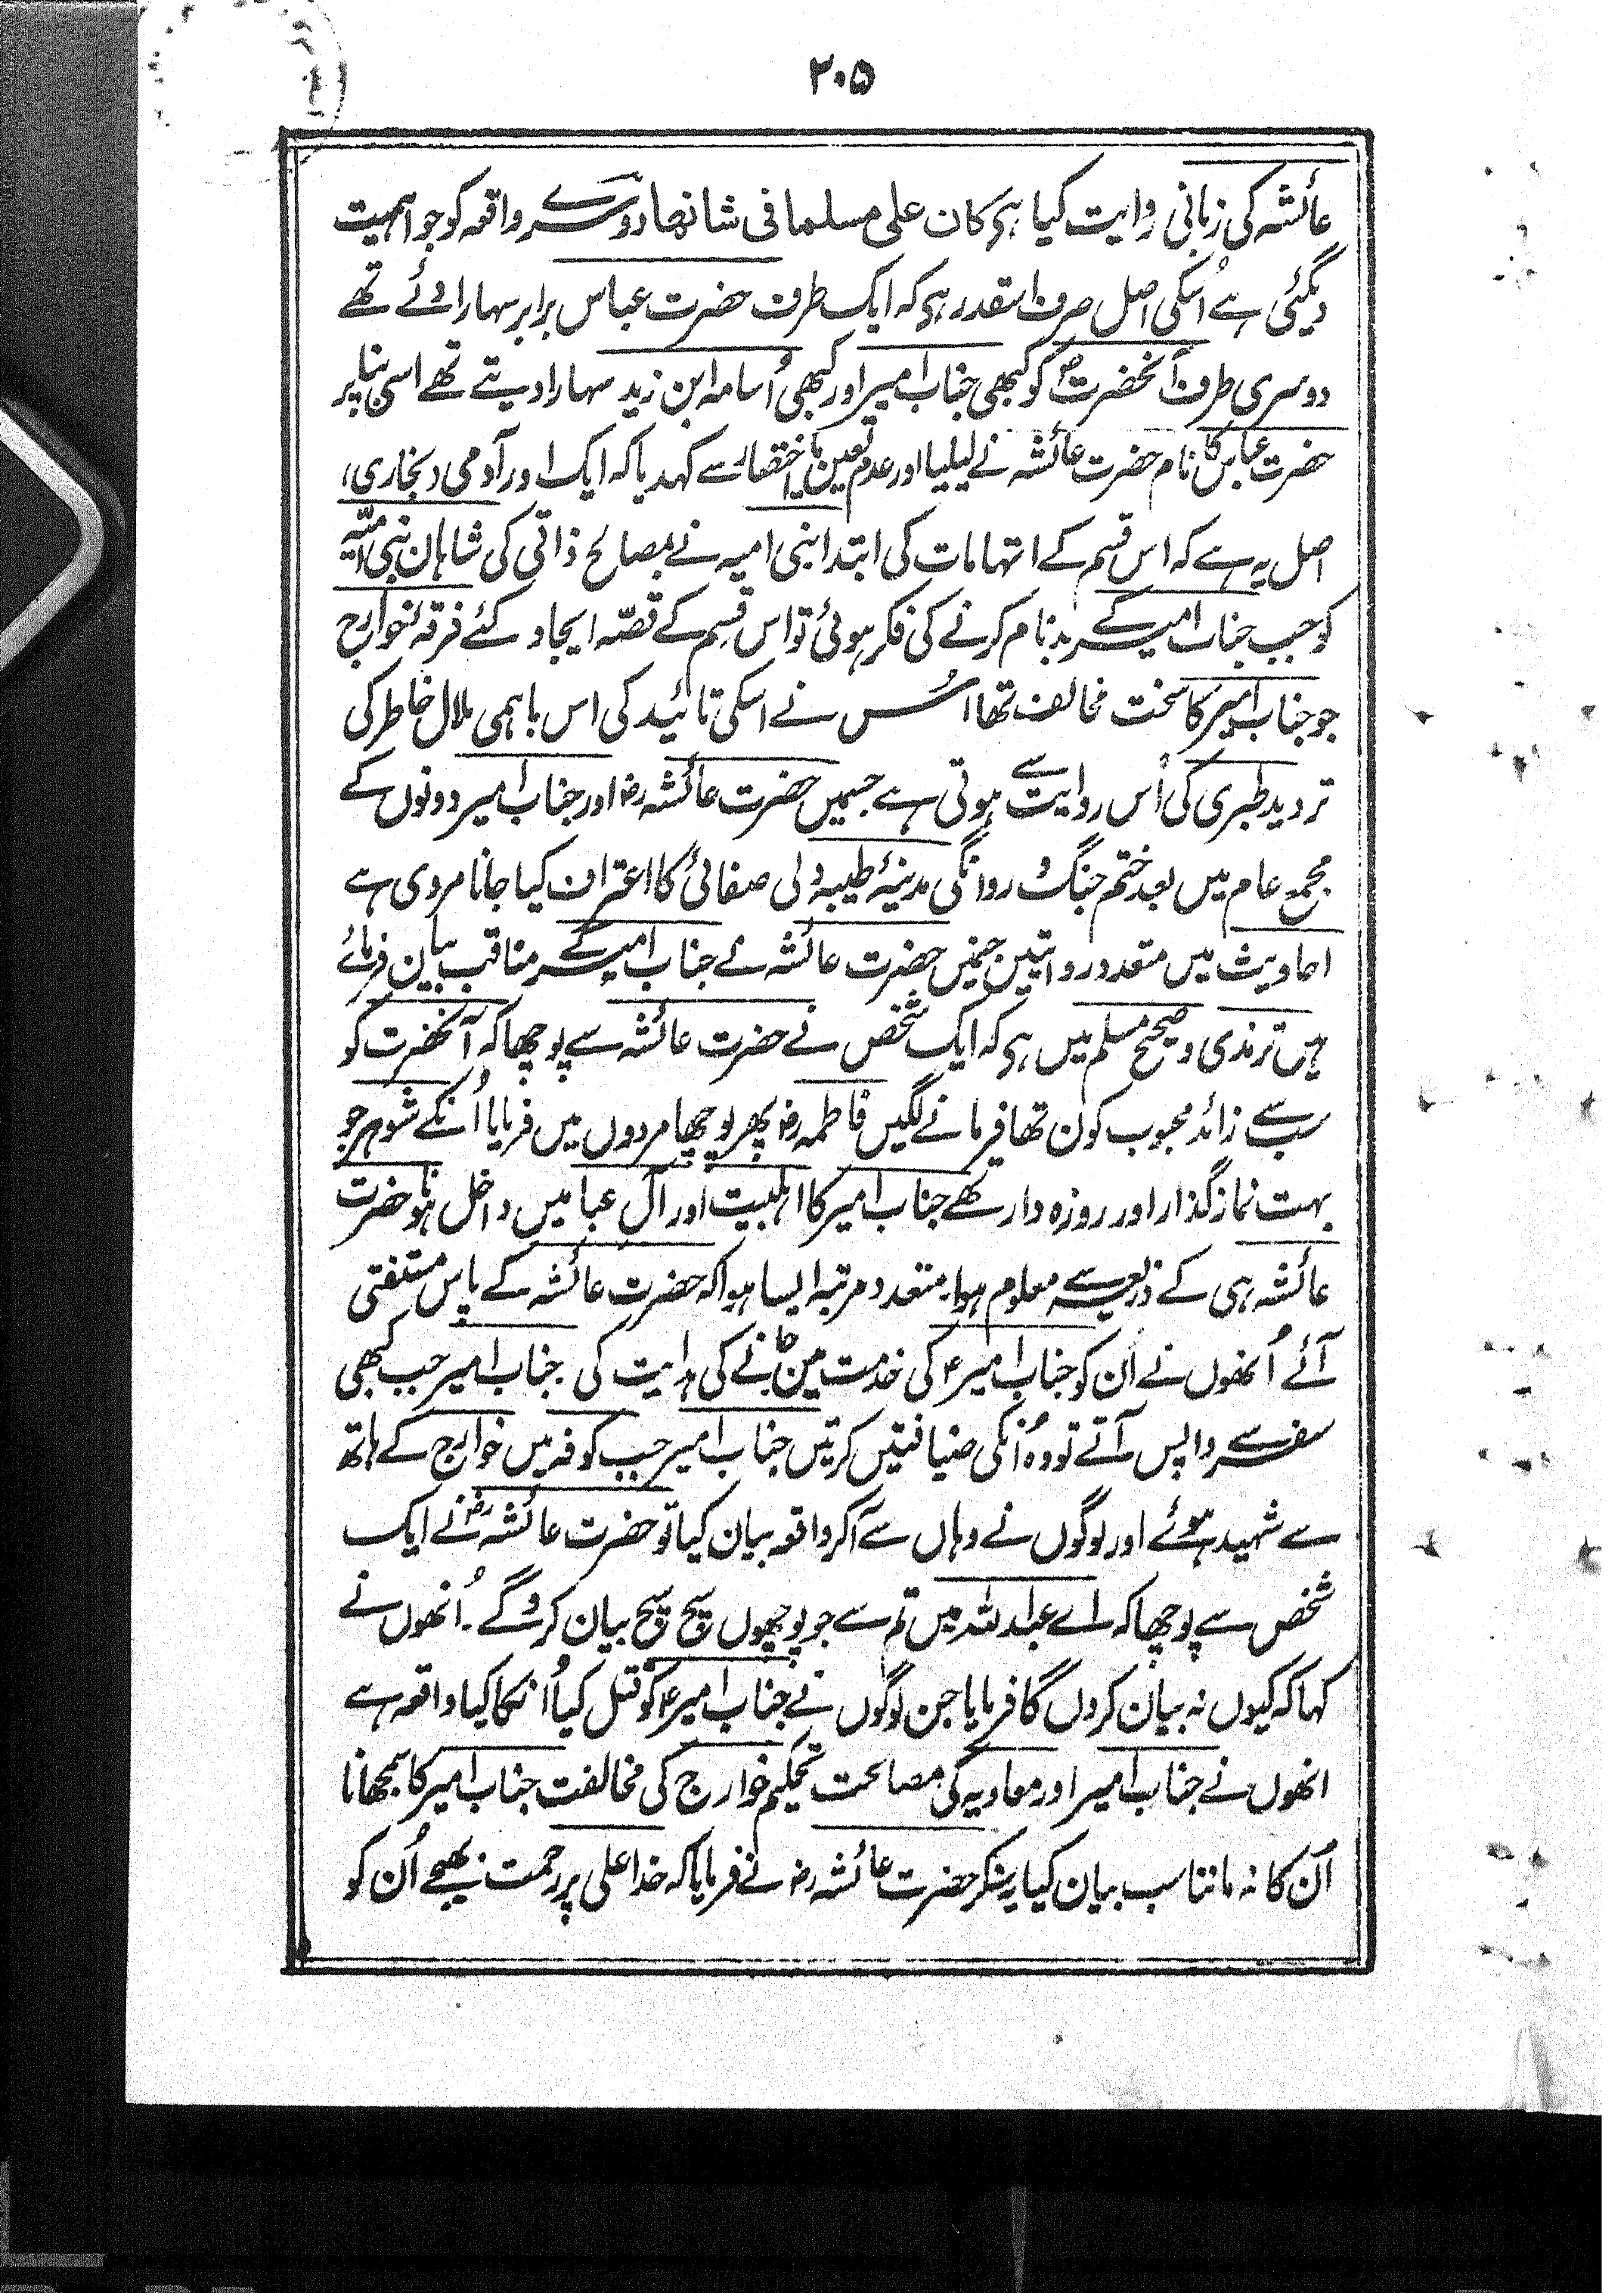 ۲۰۵
عائشہ کی زبانی روایت کیا ہی کان علی مسلما فی شانھا دوسرے واقعہ کو جو اہمیت
دیگئی ہے اُسکی اصل صرف اسقدر ہی کہ ایک طرف حضرت عباس برابر سہارا دئے تھے
دوسری طرف آنحضرتؐ کو کبھی جناب امیر اور کبھی اُسامہ ابن زید سہارا دیتے تھے اسی بنا پر
حضرت عباس کا نام حضرت عائشہ نے لیلیا اور عدم تعین یا اختصار سے کہدیا کہ ایک اور آدمی (بخاری)
اصل یہ ہے کہ اس قسم کے اتہامات کی ابتدا بنی امیہ نے بمصالح ذاتی کی شاہان بنی امیّہ
کو جب جناب امیر کے بدنام کرنے کی فکر ہوئی تو اس قسم کے قصّہ ایجاد کئے فرقہ خوارج
جو جناب امیر کا سخت مخالف تھا اُس نے اسکی تائید کی اس باہمی ملال خاطر کی
تردید طبری کی اُس روایت سے ہوتی ہے جسمیں حضرت عائشہ رض اور جناب امیر دونوں کے
مجمع عام میں بعد ختم جنگ و روانگی مدینۂ طیبہ دلی صفائی کا اعتراف کیا جانا مروی ہے
احادیث میں متعدد روایتیں جنمیں حضرت عائشہ نے جناب امیر کے مناقب بیان فرمائے
ہیں ترمذی و صحیح مسلم میں ہی کہ ایک شخص نے حضرت عائشہ سے پوچھا کہ آنحضرت کو
سب سے زائد محبوب کون تھا فرمانے لگیں فاطمہ رض پھر پوچھا مردوں میں فرمایا اُنکے شوہر جو
بہت نماز گذار اور روزہ دار تھے جناب امیر کا اہلبیت اور آل عبا میں داخل ہونا حضرت
عائشہ ہی کے ذریعہ سے معلوم ہوا۔ متعدد مرتبہ ایسا ہوا کہ حضرت عائشہ کے پاس مستفتی
آئے اُنھوں نے اُن کو جناب امیرؑ کی خدمت میں جانے کی ہدایت کی۔ جناب امیر جب کبھی
سفر سے واپس آتے تو وہ اُنکی ضیافتیں کرتیں جناب امیر جب کوفہ میں خوارج کے ہاتھ
سے شہید ہوئے اور لوگوں نے وہاں سے آکر واقعہ بیان کیا تو حضرت عائشہ رض نے ایک
شخص سے پوچھا کہ اے عبداللہ میں تم سے جو پوچھوں سچ سچ بیان کرو گے۔ اُنھوں نے
کہا کہ کیوں نہ بیان کروں گا فرمایا جن لوگوں نے جناب امیرؑ کو قتل کیا اُنکا کیا واقعہ ہے
انھوں نے جناب امیر اور معاویہ کی مصالحت تحکیم خوارج کی مخالفت جناب امیر کا سمجھانا
اُن کا نہ ماننا سب بیان کیا یہ سنکر حضرت عائشہ رض نے فرمایا کہ خدا علی پر رحمت بھیجے اُن کو